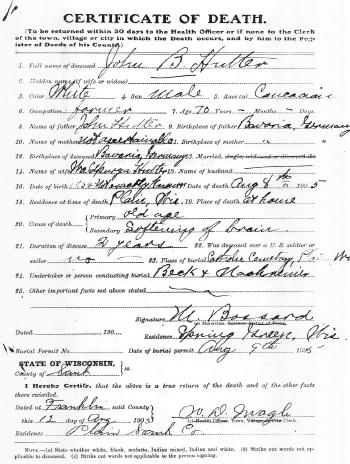 CERTIFICATE OF DEATH.
(To be returned within 30 days to the Health Officer or if none to the Clerk
of the town, village or city in which the Death occurs, and by him to the Reg-
ister of Deeds of his County.)
1. Full name of deceased John B Hutter
2. Maiden name if wife or widow
3. Color White 4. Sex Male 5. Race (a) Caucasian
6. Occupation farmer 7. Age 70 Years - Months - Days.
8. Name of father John Hutter 9. Birthplace of father Bavaria, Germany
10. Name of mother 11. Birthplace of mother " "
12. Birthplace of deceased Bavaria, Germany 13. Married, single, widowed or divorced (b)
14. Name of wife Hutter 15. Name of husband
16. Date of birth 17. Date of death Aug 8th 1905
18. Residence at time of death Plain, Wis. 19. Place of death at home
20. Cause of death: Primary old age
Secondary Softening of brain
21. Duration of disease 2 years 22. Was deceased ever a U. S. soldier or
sailor no 23. Place of burial Catholic Cemetery, Plain Wis
24. Undertaker or person conducting burial Beck &
25. Other important facts not above stated
Signature M. Bossard
Dated 190 Residence Spring Green, Wis
Burial Permit No. Date of burial permit Aug 9th 1905
STATE OF WISCONSIN,
County of Sauk ss.
I Hereby Certify, that the above is a true return of the death and of the other facts
there recorded.
Dated at Franklin said County
this 12 day Aug 1905
Residence Plain Sauk Co
NOTE.—(a) State whether white, black, mulatto, Indian mixed, Indian and white. (b) Strike out words not
applicable to deceased. (c) Strike out words not applicable to the person signing.